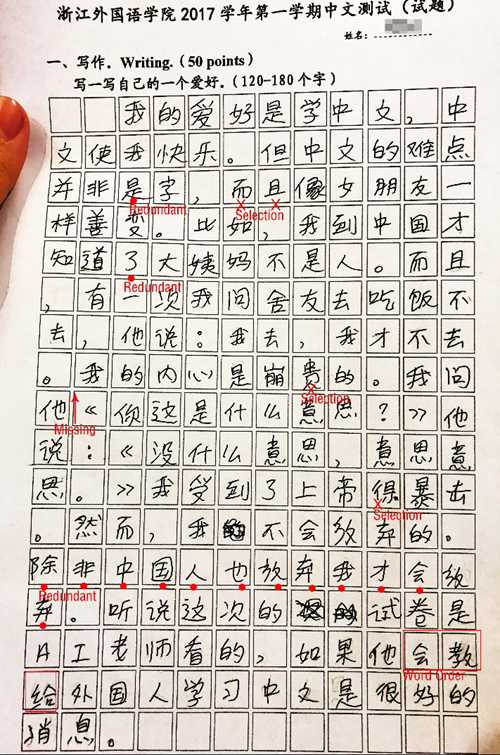 浙江外国语学院2017学年第一学期中文测试(试题)
姓名:
一、写作. Writing. (50 points)
写一写自己的一个爱好. (120-180个字)
我的爱好是学中文,中
文使我快乐。但中文的难点
并非是字,而且像女朋友一
Redundant Selection
样善变。比如,我到中国才
知道了大姨妈不是人。而且
Redundant
,有一次我问舍友去吃饭不
去,他说:我去,我才不去
。我的内心是崩贵的。我问
Selection
他《你这是什么意思?》他
Missing
说:《没什么意思,意思意
思。》我受到了上帝得暴击
Selection
。然而,我不会放弃的。
除非中国人也放弃我才会放
Redundant
弃。听说这次的试卷是
AI老师看的,如果他会教
Word Order
给外国人学习中文是很好的
消息。